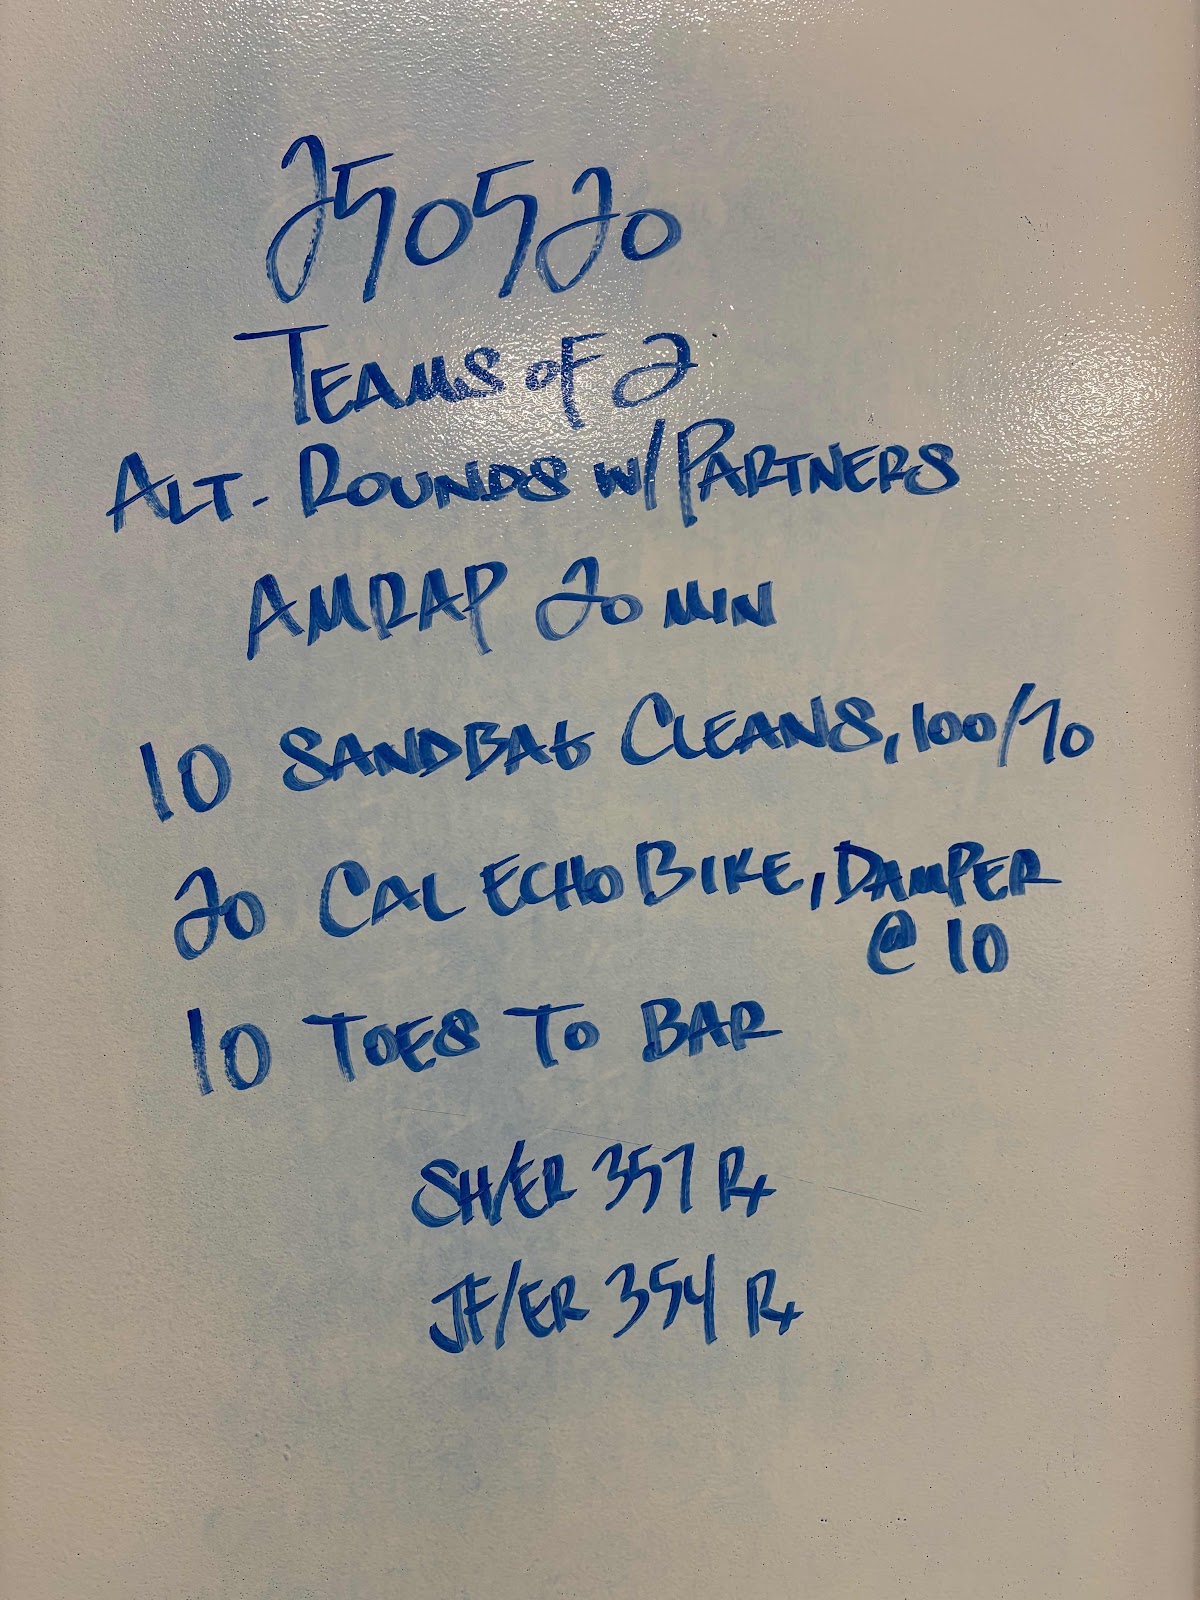 250520
TEAMS OF 2
ALT. ROUNDS W/PARTNERS
AMRAP 20 MIN
10 SANDBAG CLEANS, 100/70
20 CAL ECHO BIKE, DAMPER
@ 10
10 TOES TO BAR
SH/ER 357 Rx
JF/ER 354 Rx